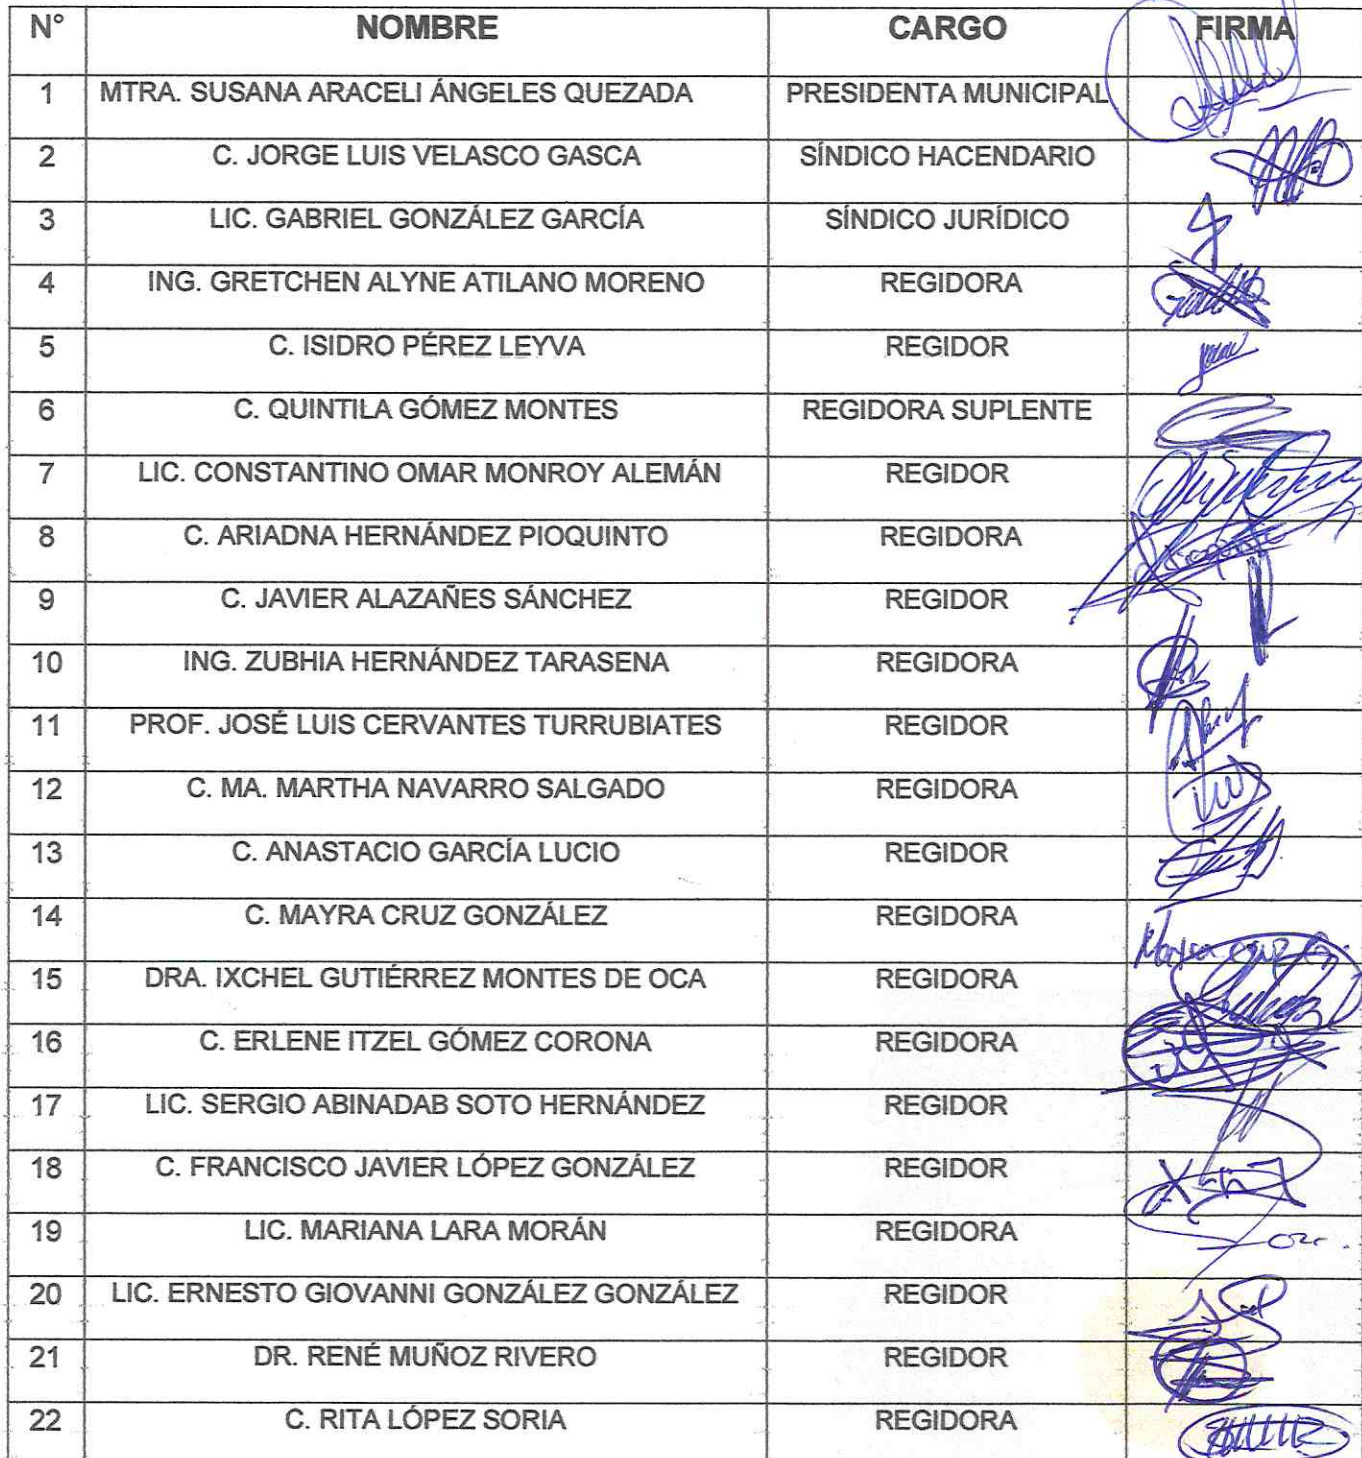 N° NOMBRE CARGO FIRMA
1 MTRA. SUSANA ARACELI ÁNGELES QUEZADA PRESIDENTA MUNICIPAL
2 C. JORGE LUIS VELASCO GASCA SÍNDICO HACENDARIO
3 LIC. GABRIEL GONZÁLEZ GARCÍA SÍNDICO JURÍDICO
4 ING. GRETCHEN ALYNE ATILANO MORENO REGIDORA
5 C. ISIDRO PÉREZ LEYVA REGIDOR
6 C. QUINTILA GÓMEZ MONTES REGIDORA SUPLENTE
7 LIC. CONSTANTINO OMAR MONROY ALEMÁN REGIDOR
8 C. ARIADNA HERNÁNDEZ PIOQUINTO REGIDORA
9 C. JAVIER ALAZAÑES SÁNCHEZ REGIDOR
10 ING. ZUBHIA HERNÁNDEZ TARASENA REGIDORA
11 PROF. JOSÉ LUIS CERVANTES TURRUBIATES REGIDOR
12 C. MA. MARTHA NAVARRO SALGADO REGIDORA
13 C. ANASTACIO GARCÍA LUCIO REGIDOR
14 C. MAYRA CRUZ GONZÁLEZ REGIDORA
15 DRA. IXCHEL GUTIÉRREZ MONTES DE OCA REGIDORA
16 C. ERLENE ITZEL GÓMEZ CORONA REGIDORA
17 LIC. SERGIO ABINADAB SOTO HERNÁNDEZ REGIDOR
18 C. FRANCISCO JAVIER LÓPEZ GONZÁLEZ REGIDOR
19 LIC. MARIANA LARA MORÁN REGIDORA
20 LIC. ERNESTO GIOVANNI GONZÁLEZ GONZÁLEZ REGIDOR
21 DR. RENÉ MUÑOZ RIVERO REGIDOR
22 C. RITA LÓPEZ SORIA REGIDORA